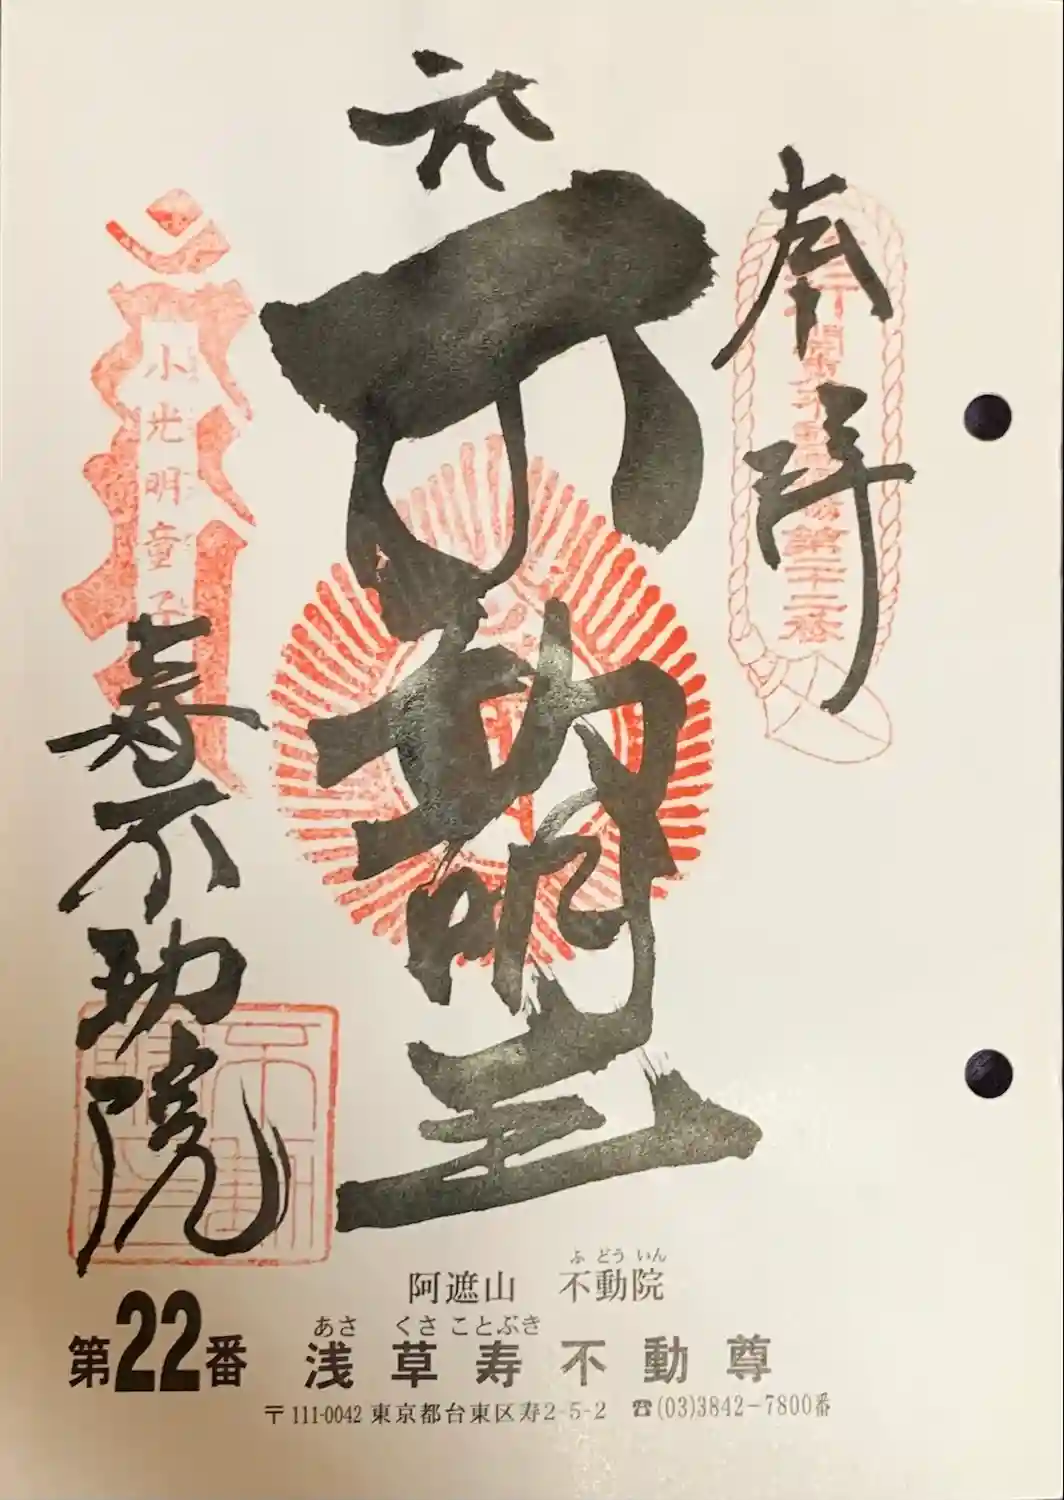 奉拝
不動明王
小光明童子
寿不動院
阿遮山 不動院
ふ どう いん
第22番 浅草寿不動尊
あさ くさ ことぶき
〒111-0042 東京都台東区寿2-5-2 ☎(03)3842-7800番